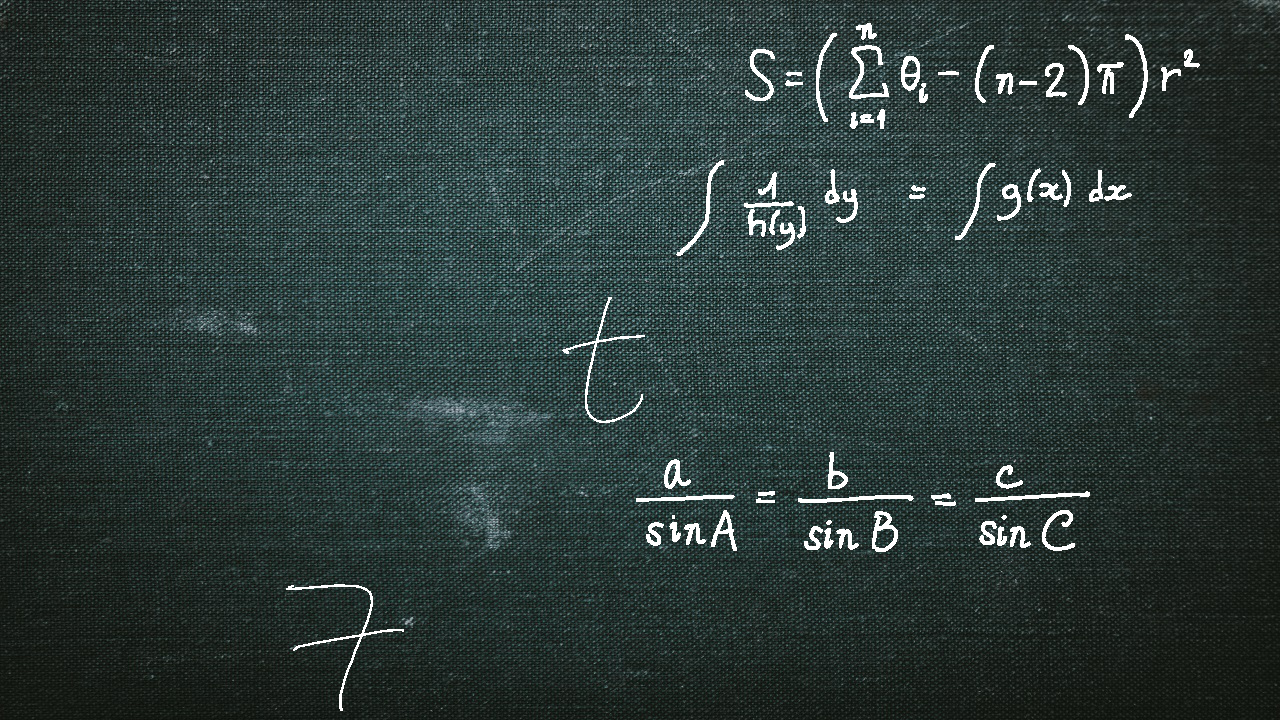 S = ( \sum_{i=1}^{n} θ_i - (n-2)π ) r²
∫ 1/h(y) dy = ∫ g(x) dx
t
a/sin A = b/sin B = c/sin C
7